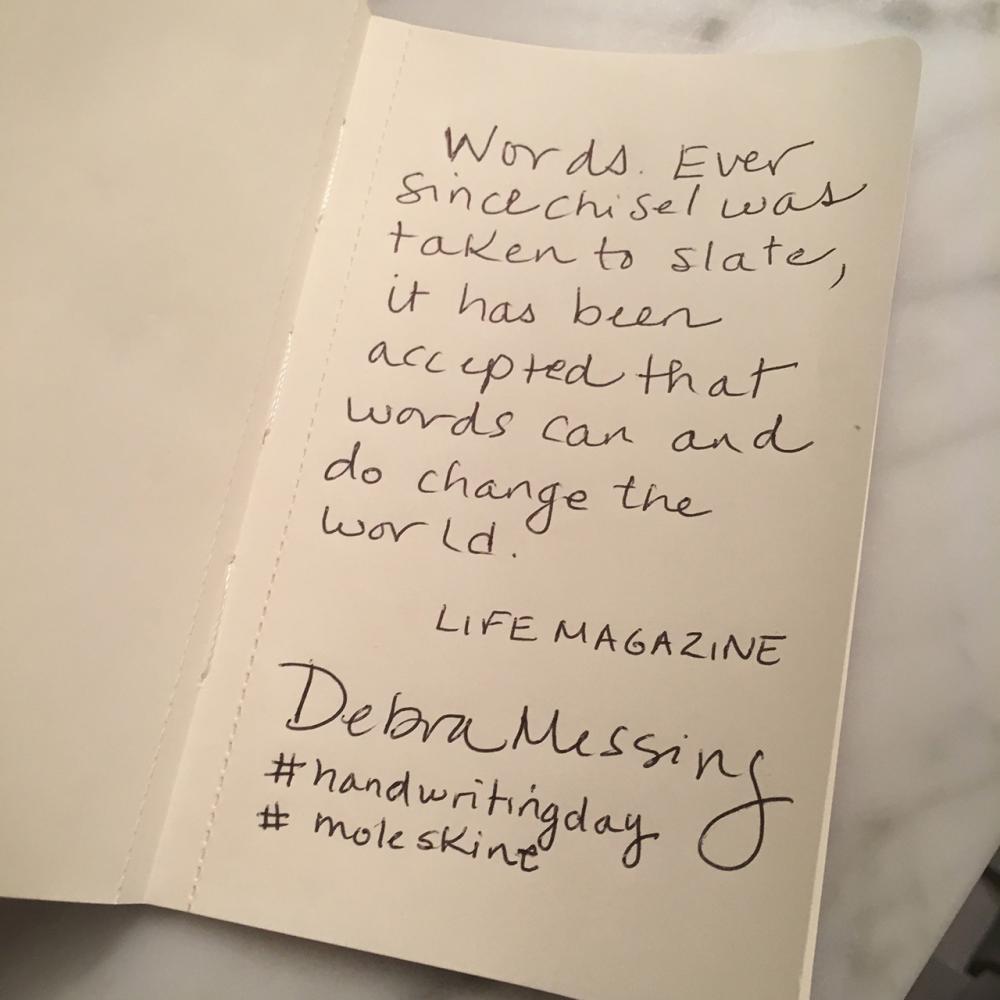 Words. Ever
since chisel was
taken to slate,
it has been
accepted that
words can and
do change the
world.
LIFE MAGAZINE
Debra Messing
#handwritingday
# moleskine